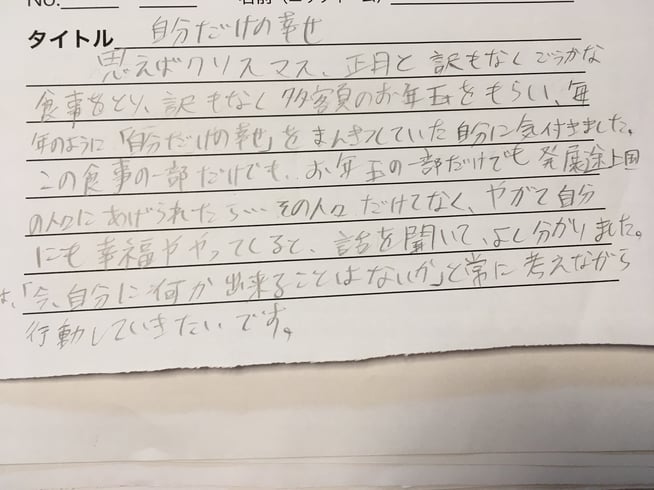 No.
タイトル 自分だけの幸せ
思えばクリスマス、正月と訳もなくごうかな
食事をとり、訳もなく多額のお年玉をもらい、毎
年のように「自分だけの幸せ」をまんきつしていた自分に気付きました。
この食事の一部だけでも、お年玉の一部だけでも発展途上国
の人々にあげられたら…その人々だけでなく、やがて自分
にも幸福がやってくると、話を聞いて、よく分かりました。
は、「今、自分に何か出来ることはないか」と常に考えながら
行動していきたいです。